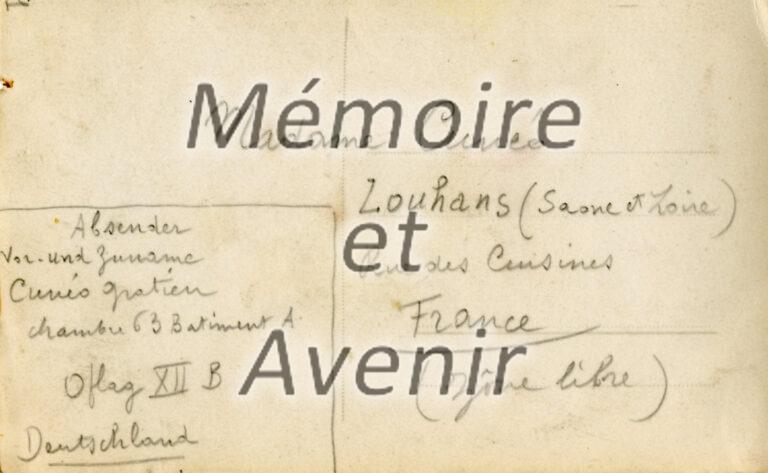 Madame Cunéo
Louhans (Saone et Loire)
Rue des Cuisines
France
(Zône libre)
Absender
Vor- und Zuname
Cunéo gratien
chambre 63 Batiment A
Oflag XII B
Deutschland
Mémoire
et
Avenir